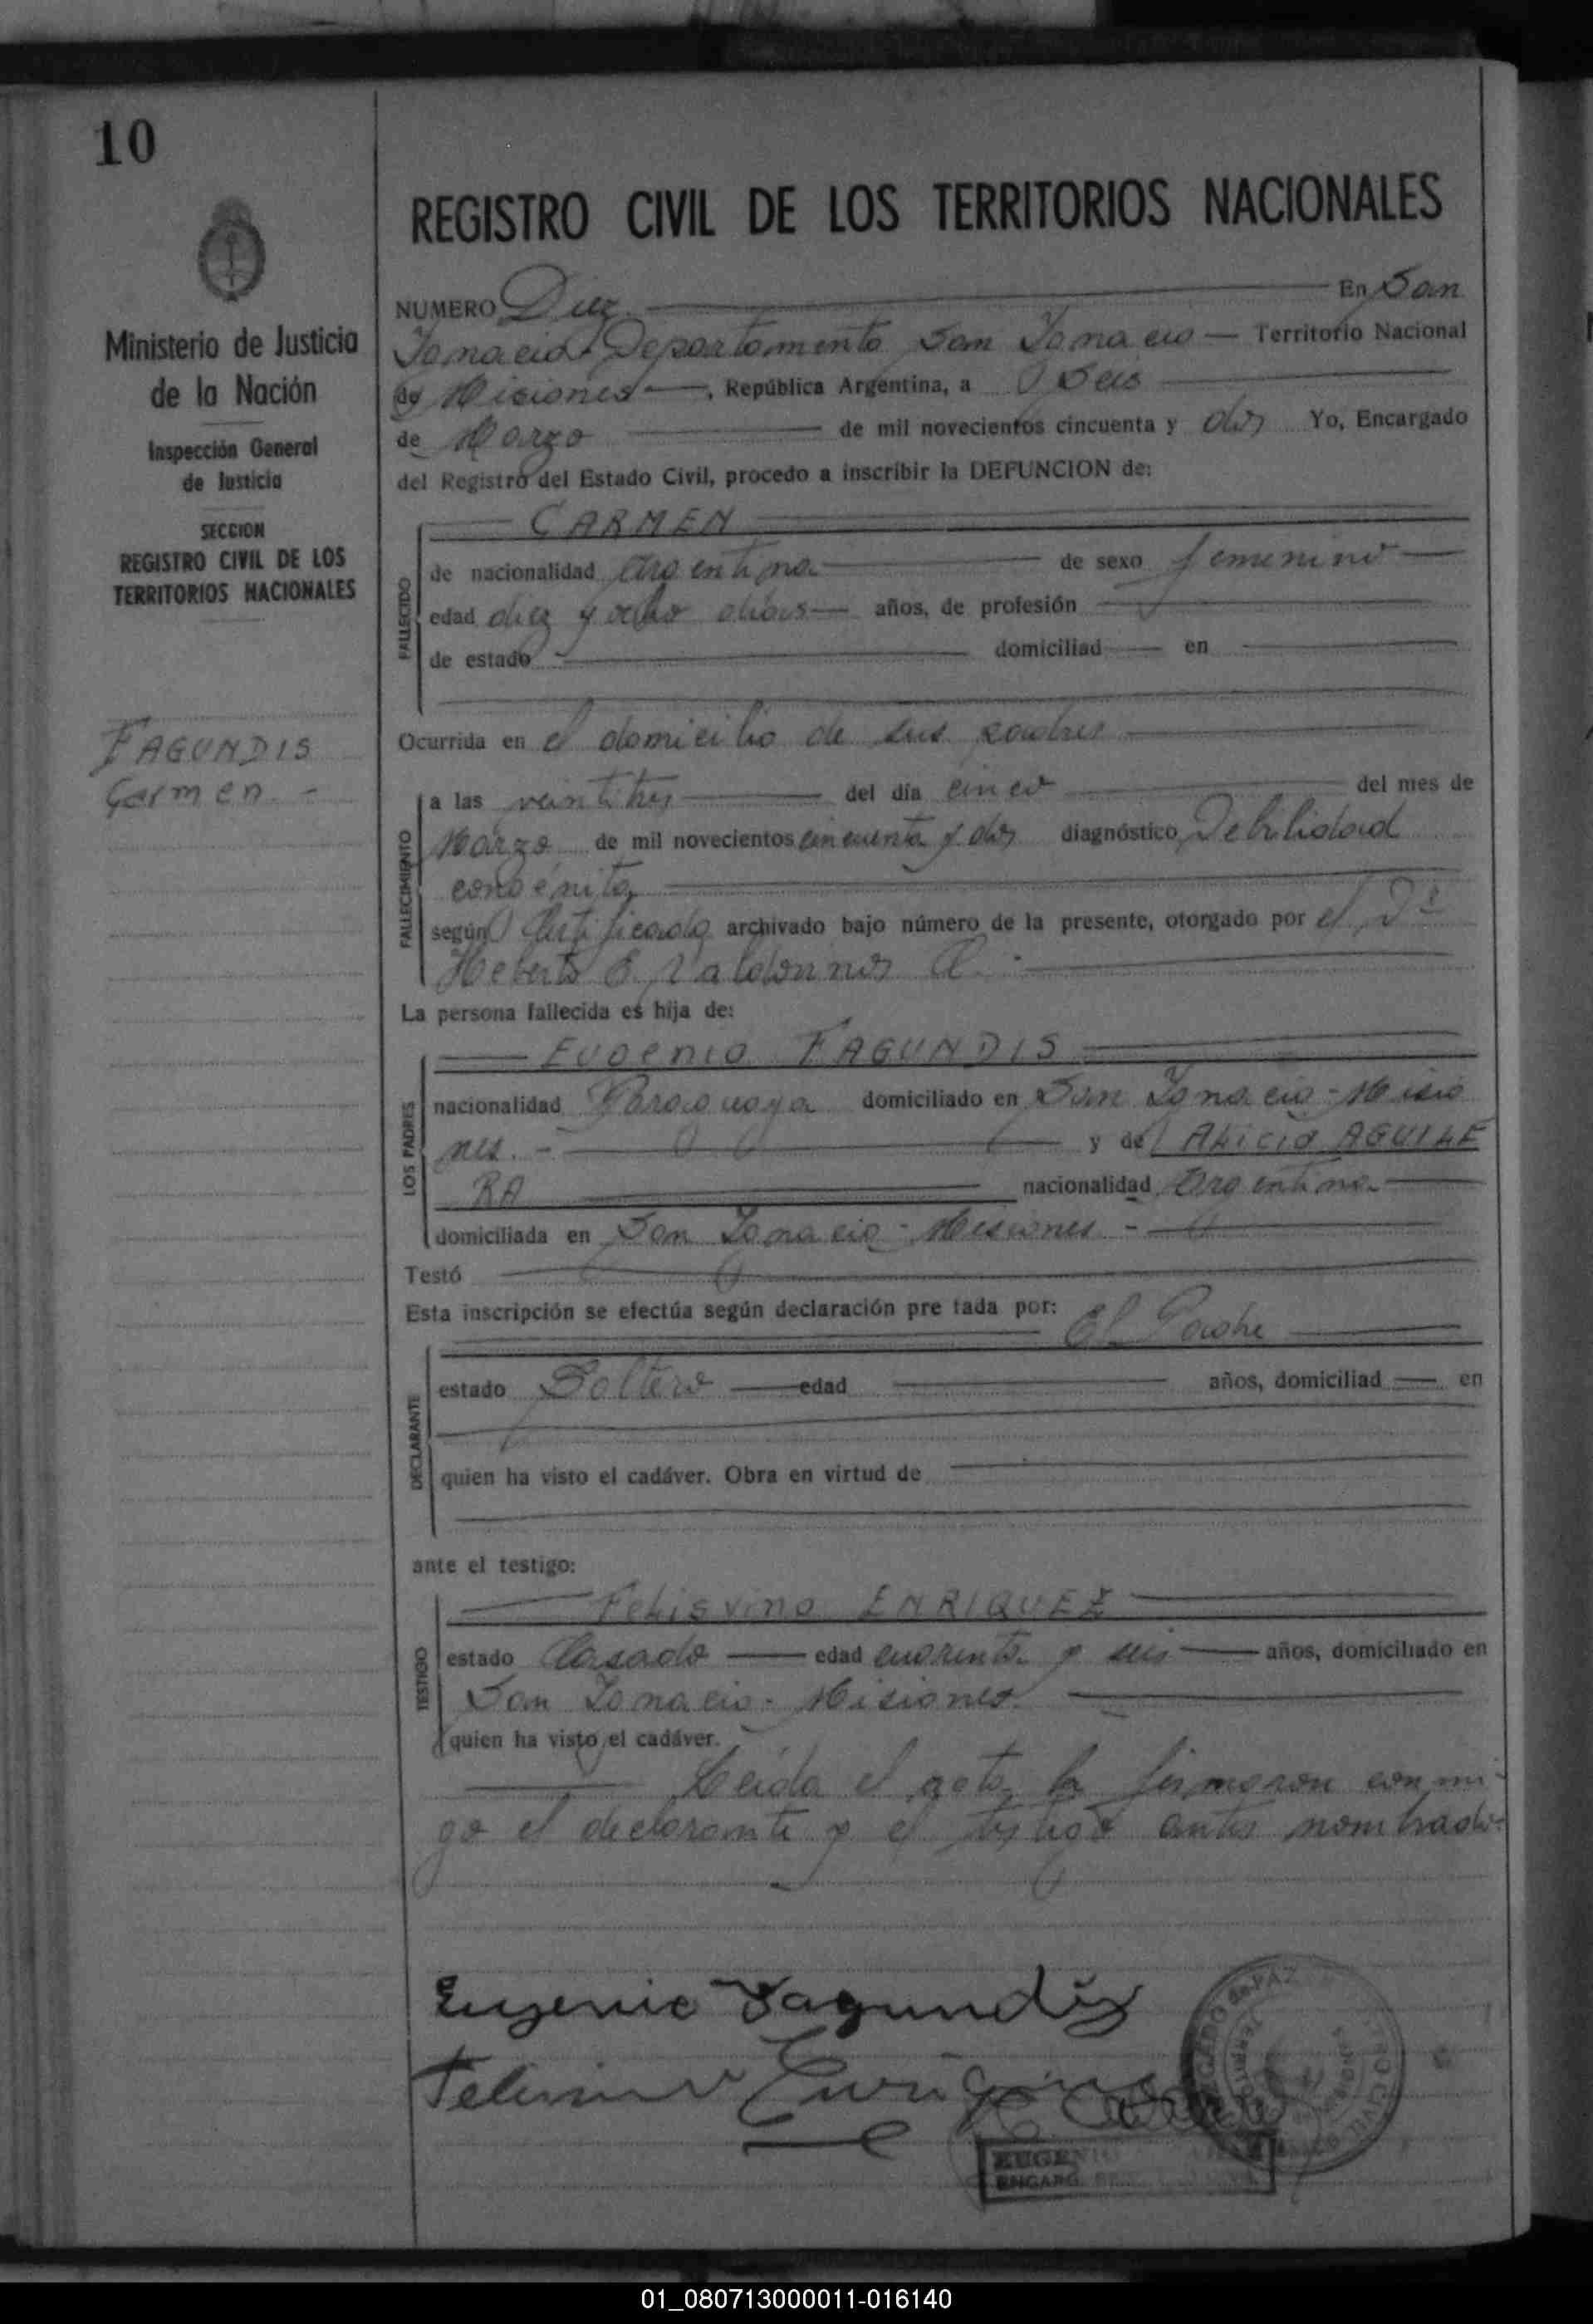 10
Ministerio de Justicia
de la Nación
Inspección General
de Justicia
SECCION
REGISTRO CIVIL DE LOS
TERRITORIOS NACIONALES
FAGUNDIS
Carmen. -
REGISTRO CIVIL DE LOS TERRITORIOS NACIONALES
NUMERO Diez. En San
Ignacio. Departamento San Ignacio Territorio Nacional
de Misiones, República Argentina, a Seis
de Marzo de mil novecientos cincuenta y dos Yo, Encargado
del Registro del Estado Civil, procedo a inscribir la DEFUNCION de:
CARMEN
FALLECIDO
de nacionalidad argentina de sexo femenino
edad diez y ocho días años, de profesión
de estado domiciliad en
Ocurrida en el domicilio de sus padres
FALLECIMIENTO
a las veintitres del día cinco del mes de
Marzo de mil novecientos cincuenta y dos diagnóstico Debilidad
congénita
según Certificado archivado bajo número de la presente, otorgado por el Dr
Heberto E.
La persona fallecida es hija de:
LOS PADRES
Eugenio FAGUNDIS
nacionalidad Paraguaya domiciliado en San Ignacio - Misio
nes. - y de Alicia AGUILE
RA nacionalidad argentina
domiciliada en San Ignacio - Misiones -
Testó
Esta inscripción se efectúa según declaración pre tada por:
El Padre
DECLARANTE
estado Soltero edad años, domiciliad en
quien ha visto el cadáver. Obra en virtud de
ante el testigo:
TESTIGO
Felisvino ENRIQUEZ
estado Casado edad cuarenta y seis años, domiciliado en
San Ignacio - Misiones.
quien ha visto el cadáver.
Leída el acta la firmaron conmi-
go el declarante y el testigo antes nombrado.
Eugenio Fagundiz
EUGENIO
ENCARG.
01_080713000011-016140